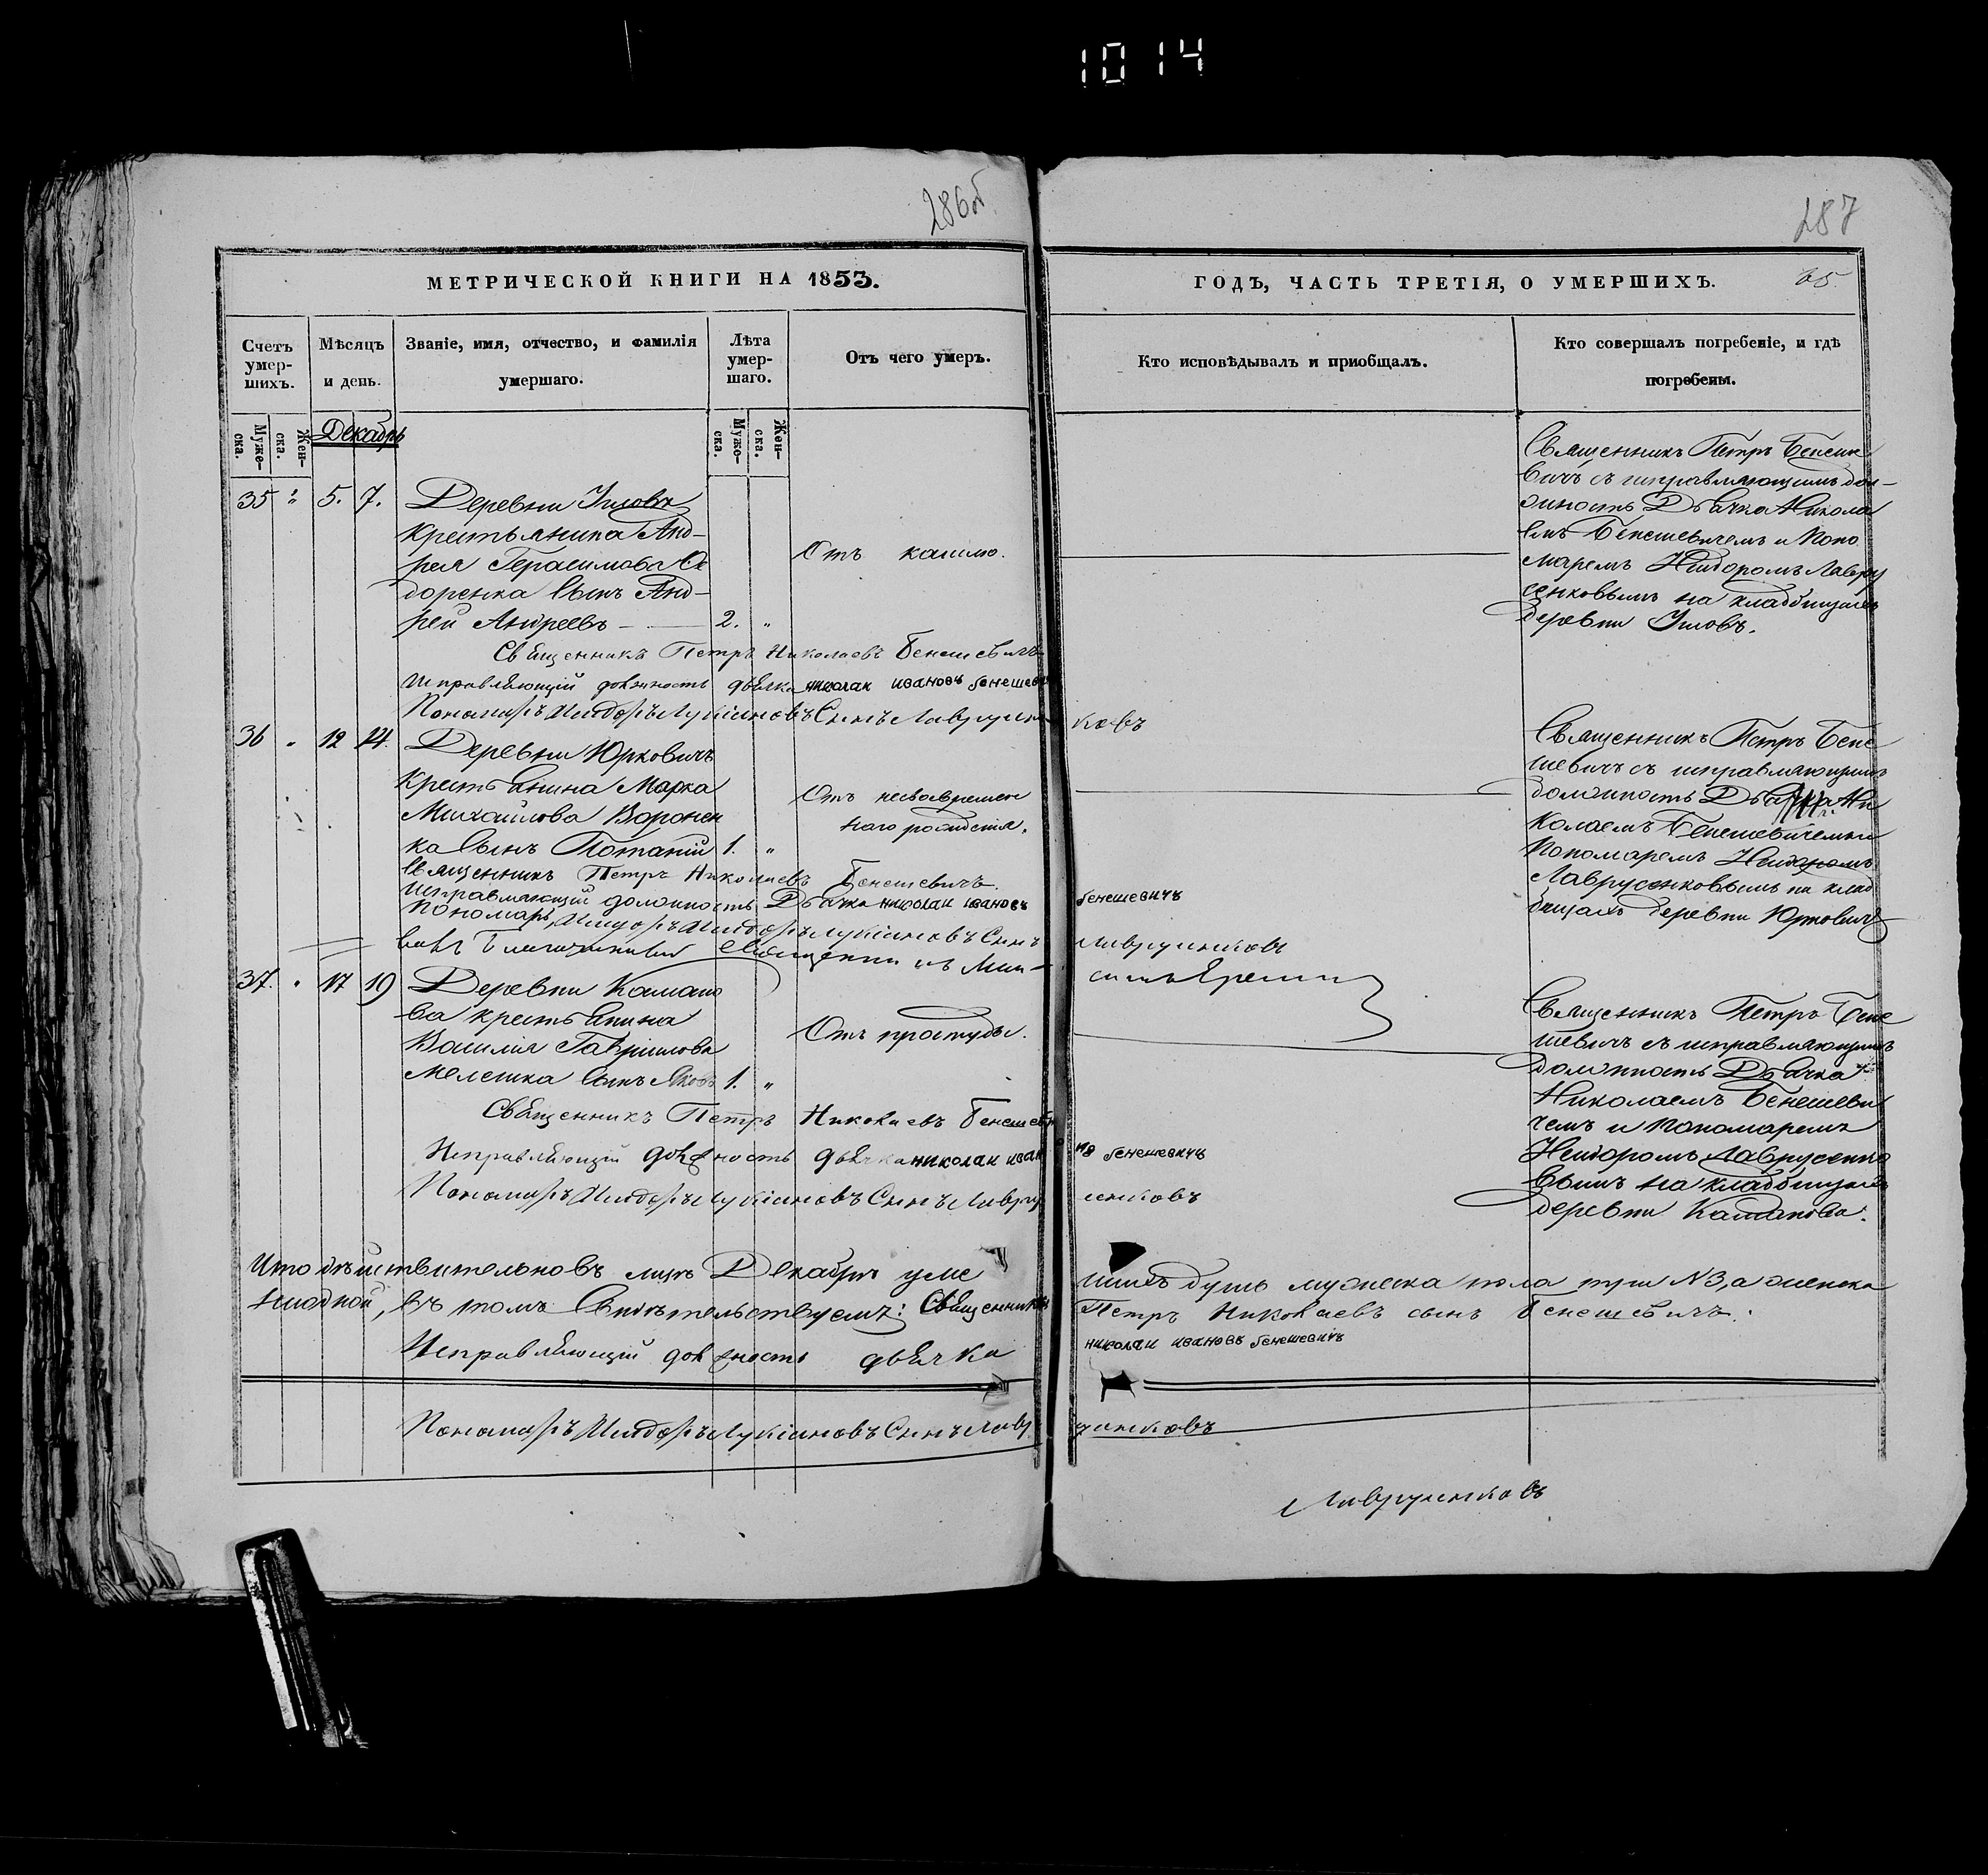 1014
286об
287
МЕТРИЧЕСКОЙ КНИГИ НА 1853.
ГОДЪ, ЧАСТЬ ТРЕТІЯ, О УМЕРШИХЪ.
65
Счетъ умер-шихъ.
Мѣсяцъ и день.
Званіе, имя, отчество, и фамилія умершаго.
Лѣта умер-шаго.
Отъ чего умеръ.
Кто исповѣдывалъ и приобщалъ.
Кто совершалъ погребеніе, и гдѣ погребены.
Муже-ска.
Жен-ска.
Декабрь
Муже-ска.
Жен-ска.
35 " 5. 7. Деревни
крестьянина Анд-
рея Герасимова Си
доренка сынъ Анд-
рей Андреевъ — 2. "
Отъ кашлю.
Священникъ Петръ Бенеше
вичъ съ исправляющимъ дол-
жность Дьячка Никола
емъ Бенешевичемъ и Поно
маремъ Исидоромъ Лавру
сенковымъ на кладбищахъ
деревни
Священникъ Петръ Николаевъ Бенешевичъ
Исправляющій должность дьячка николаи ивановъ бенешеви
Пономарь Исидоръ Лукіановъ Сынъ Лаврусен ковъ
36 " 12 14. Деревни Юрковичъ
крестьянина Марка
Михаилова Воронен
ка сынъ Потапій 1. "
Отъ несвоевремен
наго рожденія.
Священникъ Петръ Бене
шевичъ съ исправляющимъ
должность Дьячка Ни
колаемъ Бенешевичемъ и
Пономаремъ Исидоромъ
Лаврусенковымъ на клад
бищахъ деревни Юрковичъ
Священникъ Петръ Николаевъ Бенешевичъ.
Исправляющій должность Дьячка николаи ивановъ бенешевичъ
Пономарь Исидоръ Лукіановъ Сынъ Лаврусенковъ
37. " 17 19 Деревни Каштано
ва крестьянина
Василія Гавріилова
Мелешка сынъ Яковъ 1. "
Отъ простуды.
Священникъ Петръ Бене
шевичъ съ исправляющимъ
должность Дьячка
Николаемъ Бенешеви
чемъ и Пономаремъ
Исидоромъ Лаврусенко
вымъ на кладбищахъ
деревни Каштанова.
Священникъ Петръ Николаевъ Бенешевич
Исправляющій должность дьячка николаи иван въ бенешевичъ
Пономарь Исидоръ Лукіановъ Сынъ Лавру сенковъ
Что дѣйствительно въ мцѣ Декабрѣ уме ршихъ душъ мужеска пола три N3, а женска
ниодной, въ томъ свидѣтельствуемъ: Священникъ Петръ Николаевъ сынъ Бенешевичъ.
Исправляющій должность дьячка николаи ивановъ бенешевичъ
Пономарь Исидоръ Лукіановъ Сынъ Лавр усенковъ
Лаврусенковъ